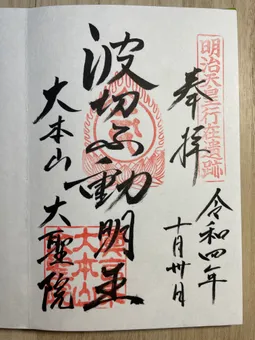 明治天皇行在遺跡
奉拝
令和四年
十月卅日
波切不動明王
大本山大聖院